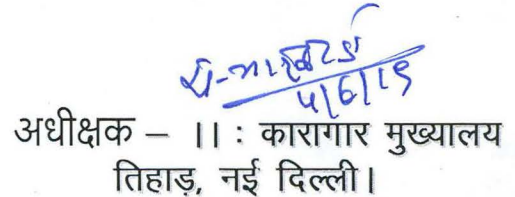 4/6/19
अधीक्षक – II : कारागार मुख्यालय
तिहाड़, नई दिल्ली।